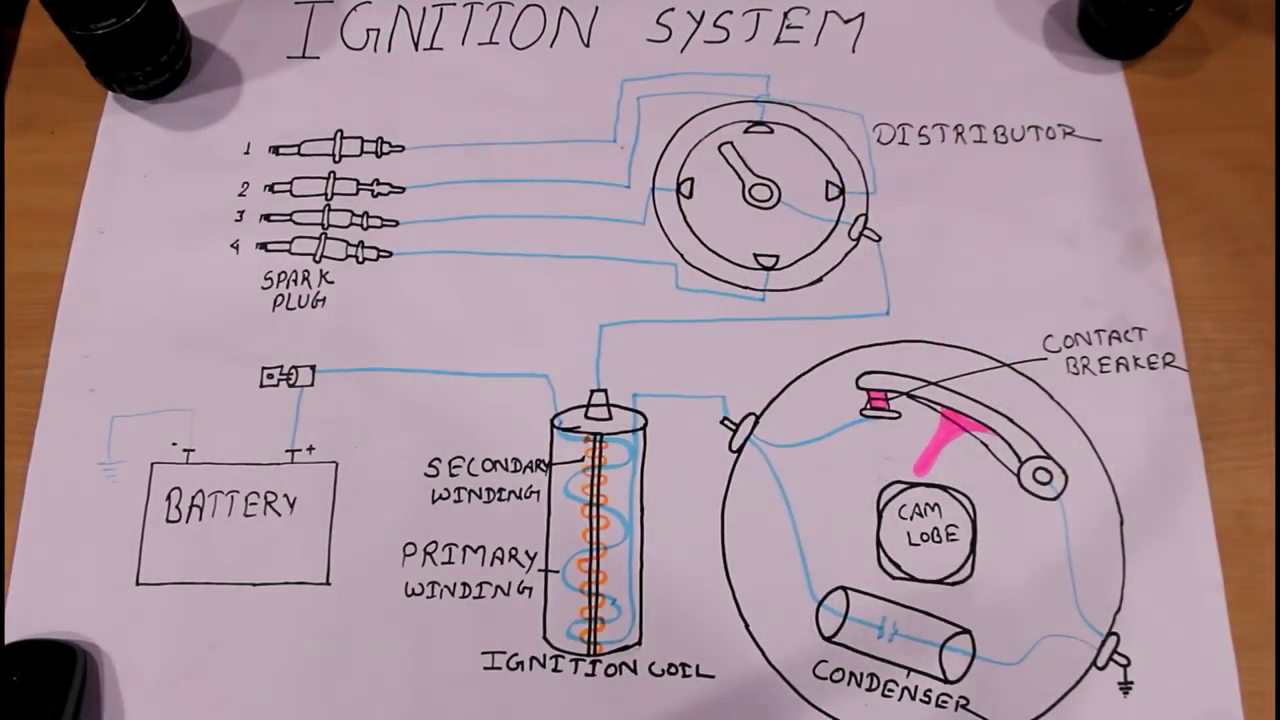 IGNITION SYSTEM
DISTRIBUTOR
1
2
3
4
SPARK
PLUG
CONTACT
BREAKER
- +
BATTERY
SECONDARY
WINDING
PRIMARY
WINDING
IGNITION COIL
CAM
LOBE
CONDENSER